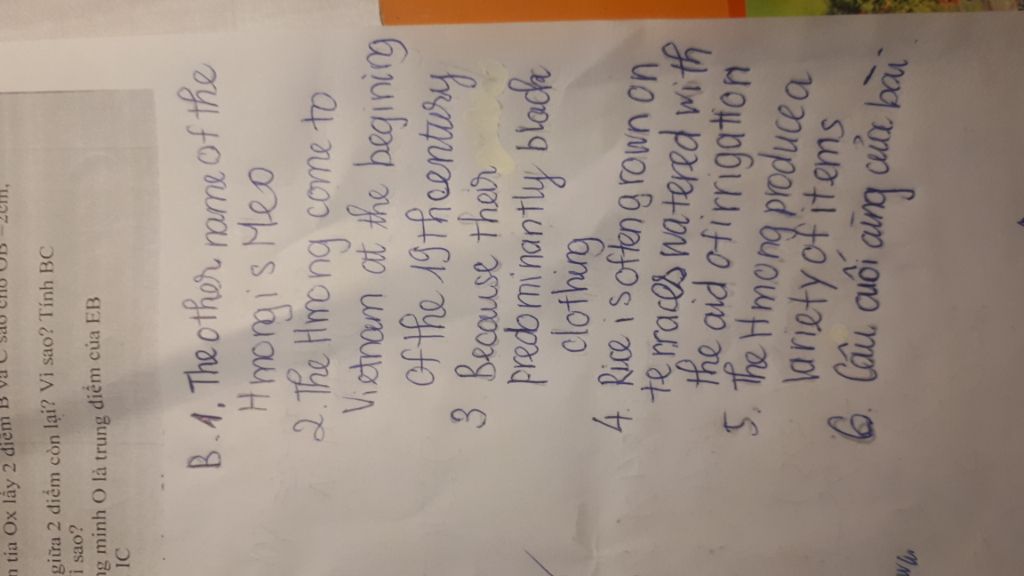 n tia Ox lấy 2 điểm B và C sao cho OB = 2cm,
giữa 2 điểm còn lại? Vì sao? Tính BC
ì sao?
ng minh O là trung điểm của EB
IC
B.1. The other name of the
Hmong is Meo
2. The Hmong come to
Vietnam at the begining
of the 19th century
3 Because their
predominantly black
clothing
4. Rice is often grown on
terraces watered with
the aid of irrigation
5. The Hmong produce a
variety of items
6. Câu cuối cùng của bài.